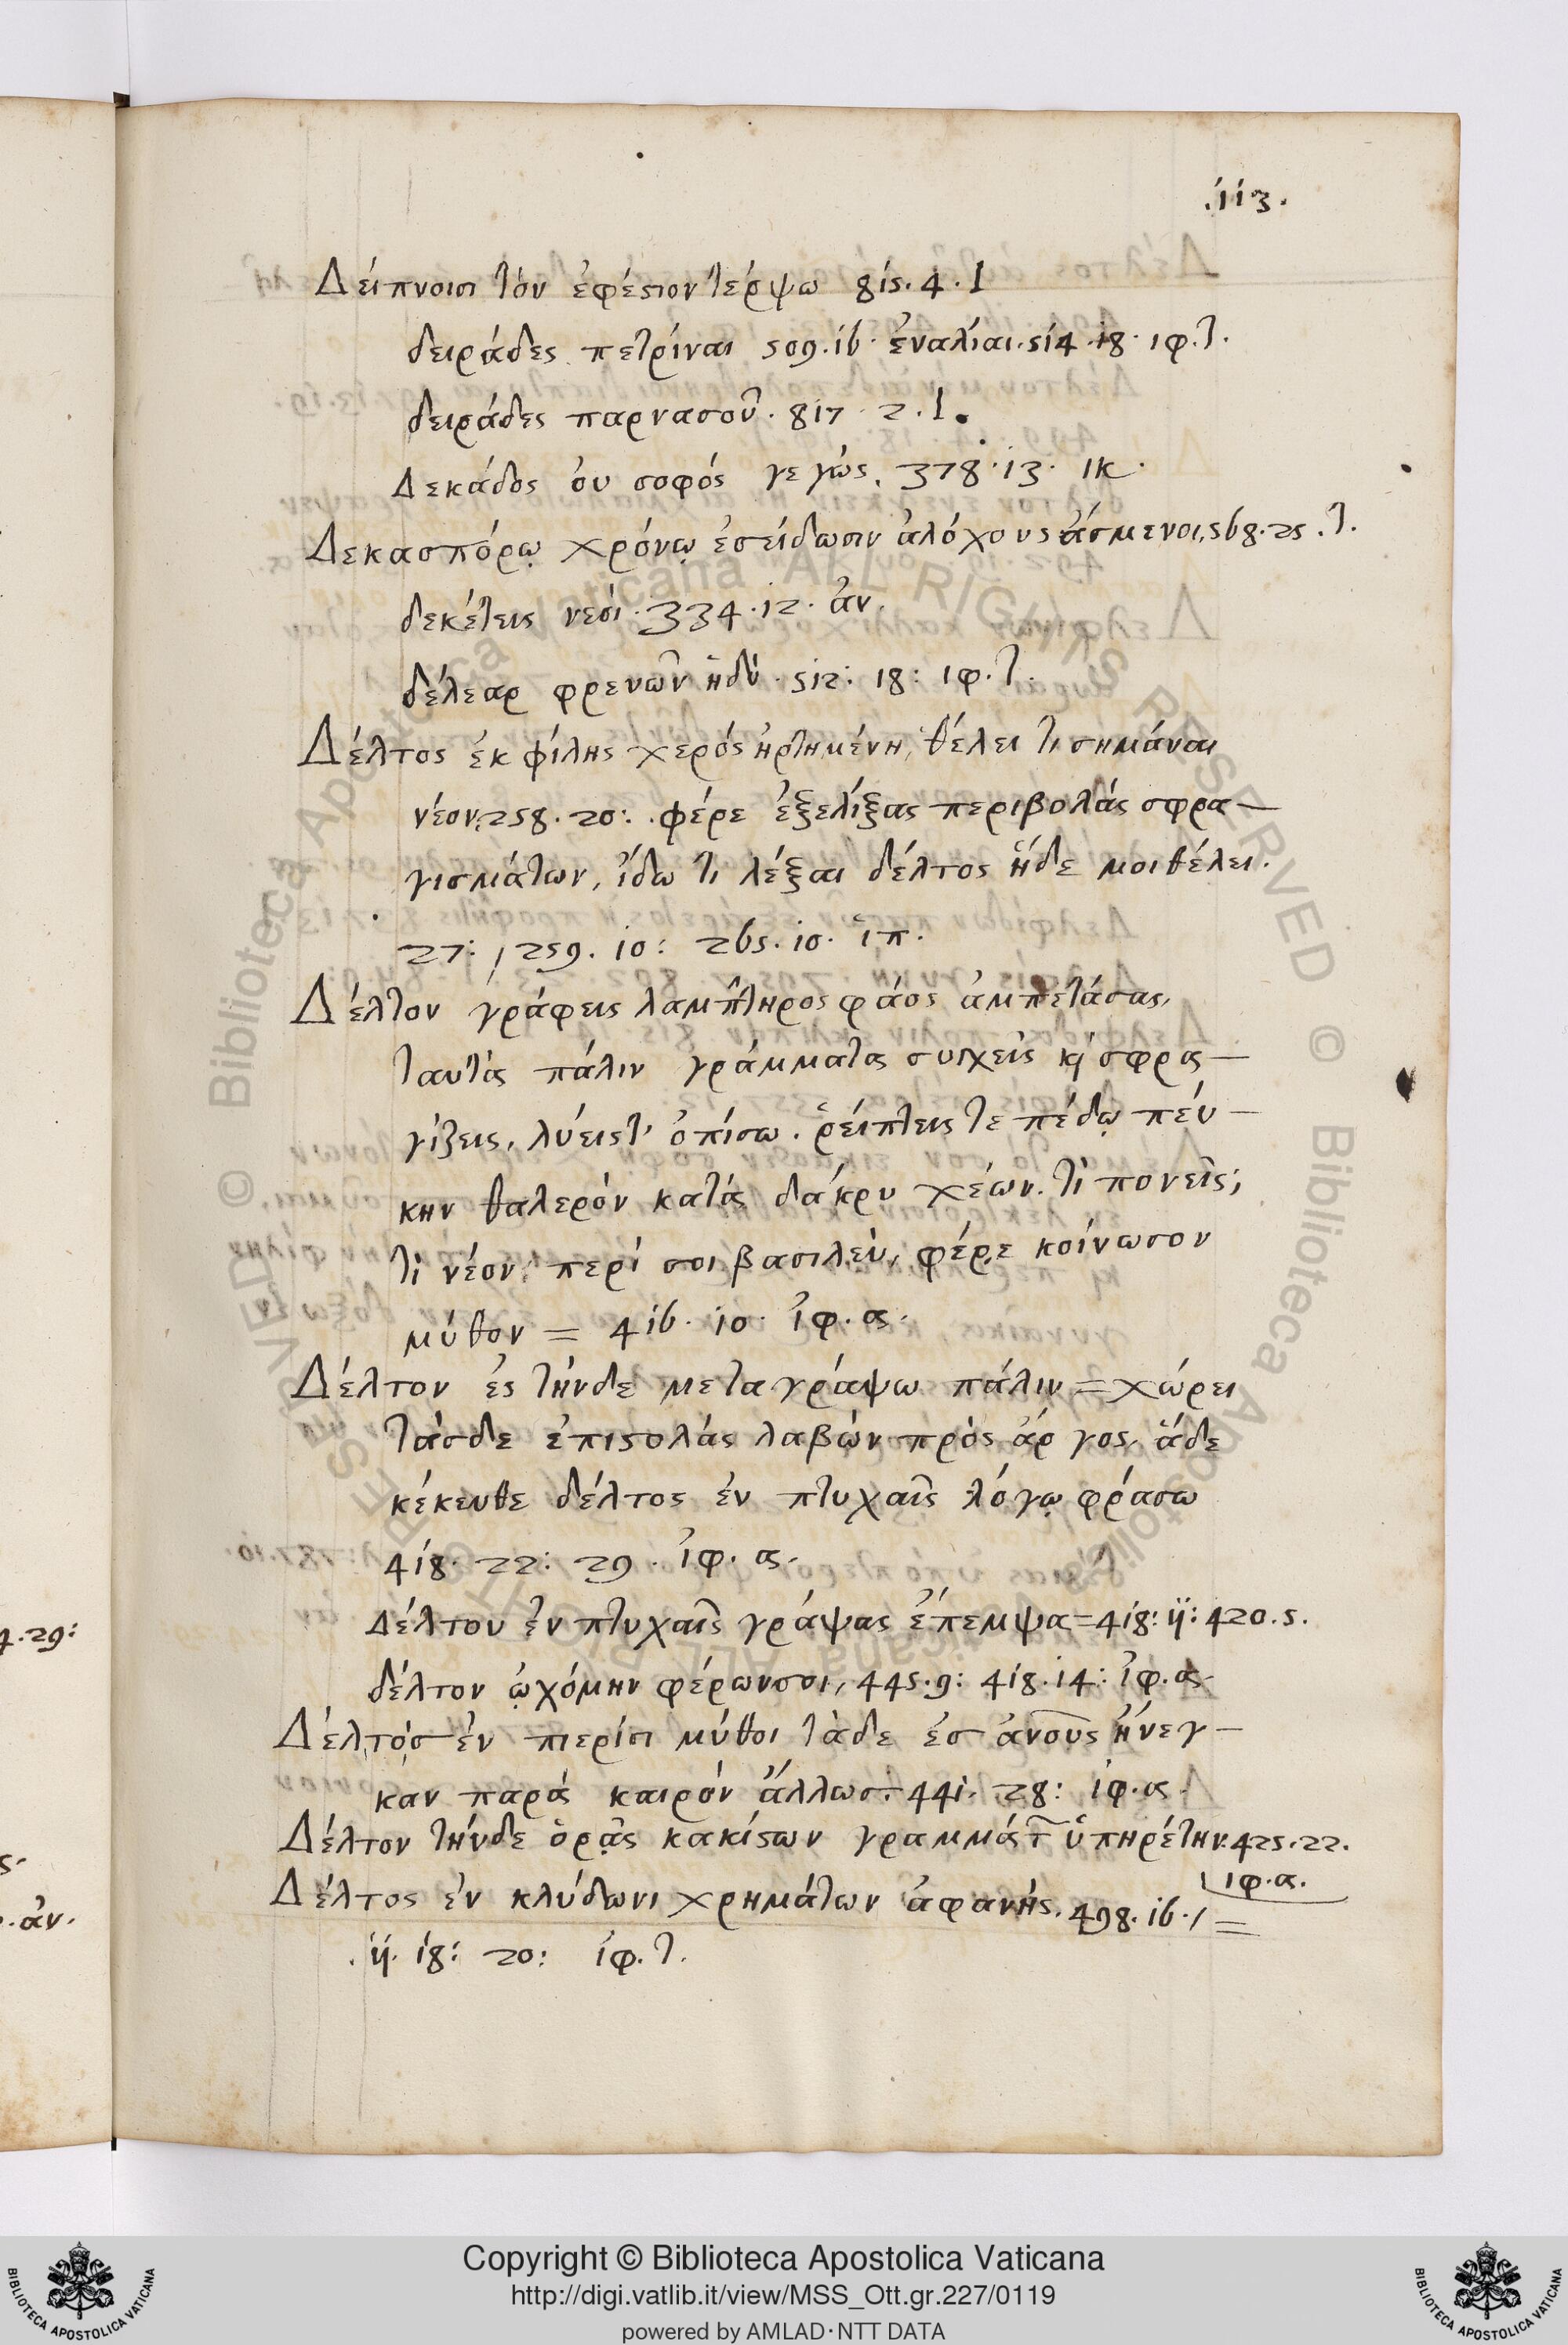 .113.
Δείπνοισι τὸν ἐφέστιον τέρψω 815. 4. Ι
δειράδες πετρίναι 509. 16. ἐναλίαι. 514. 18. ιφ. τ.
δειράδες παρνασοῦ. 817. 2. Ι.
Δεκάδος ὁυ σοφός γεγώς. 378. 13. ικ.
Δεκασπόρῳ χρόνῳ ἐσείδωσιν ἀλόχους ἄσμενοι, 568. 25. τ.
δεκέτεις νεοί. 334. 12. ἀν.
δέλεαρ φρενῶν ἡδύ. 512: 18: ιφ. τ.
Δέλτος ἐκ φίλης χερός ἠρτημένη, θέλει τι σημάναι
νέον; 258. 20: φέρε ἐξελίξας περιβολάς σφρα—
γισμάτων, ἴδω τι λέξαι δέλτος ἥδε μοι θέλει.
27: , 259. 10: 265. 10. ἱπ.
Δέλτον γράφεις λαμπτηρος φάος ἀμπετάσας,
ταυτὰ πάλιν γράμματα συγχεῖς κ̀ σφρα—
γίζεις, λύεις τ' ὀπίσω. ῥείπτεις τε πέδῳ πέυ—
κην θαλερὸν κατὰ δάκρυ χέων. τί πονεῖς;
τί νέον; περί σοι βασιλεὺ, φέρε κοίνωσον
μύθον = 416. 10. ἰφ. α.
Δέλτον ἐς τήνδε μεταγράψω πάλιν = χώρει
τάσδε ἐπιστολάς λαβὼν πρὸς ἄργος, ἅδε
κέκευθε δέλτος ἐν πτυχαῖς λόγῳ φράσω
418. 22: 29. ἰφ. α.
Δέλτου ἐν πτυχαῖς γράψας ἔπεμψα = 418: 11: 420. 5.
δέλτον ᾠχόμην φέρων σοι, 445. 9: 418. 14: ἰφ. α.
Δέλτοισ ἐν πιερίσι μύθοι τάδε ἐσ ἀνους ἤνεγ—
καν παρά καιρόν ἄλλωσ. 441. 28: ἰφ. α.
Δέλτον τήνδε ὁρᾷς κακίστων γραμμάτ̅ ὑπηρέτην. 425. 22.
ιφ. α.
Δέλτος ἐν κλύδωνι χρημάτων ἀφανής. 498. 16. / =
. 11. 18: 20: ἰφ. τ.
4. 29:
ς.
. ἀν.
Copyright © Biblioteca Apostolica Vaticana
http://digi.vatlib.it/view/MSS_Ott.gr.227/0119
powered by AMLAD · NTT DATA